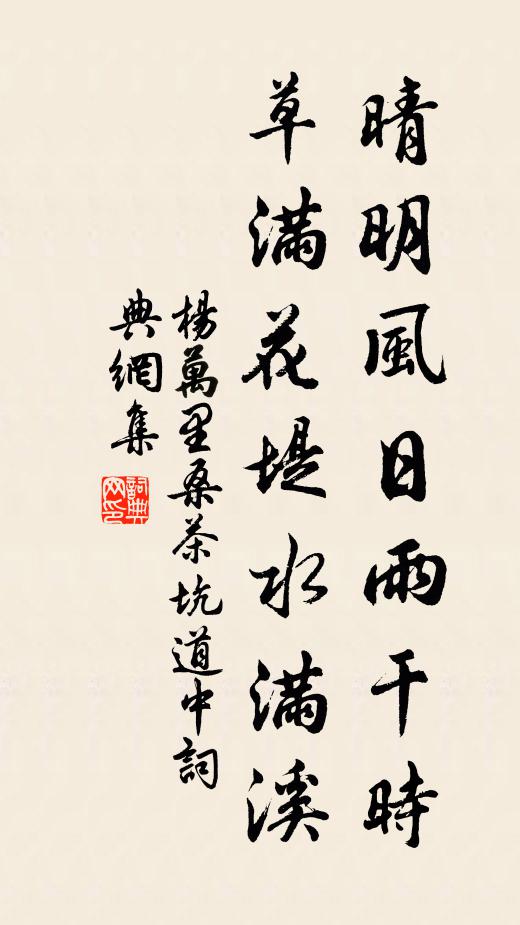 晴明風日雨干時
草滿花堤水滿溪
楊萬里桑茶坑道中詞
典網集
詞典網印